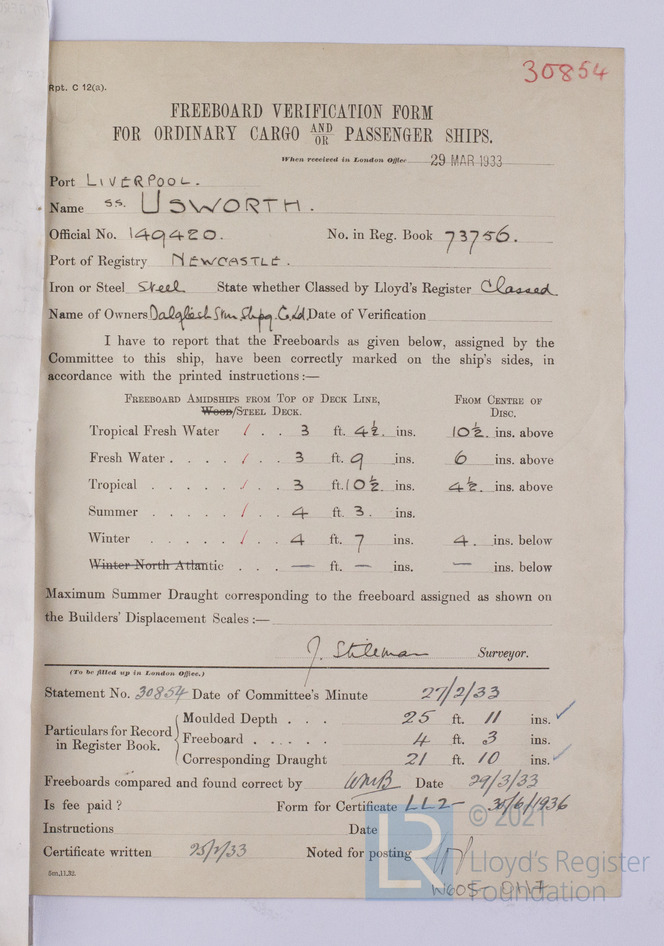 30854
Rpt. C 12(a).
FREEBOARD VERIFICATION FORM
FOR ORDINARY CARGO AND/OR PASSENGER SHIPS.
When received in London Office 29 MAR 1933
Port LIVERPOOL.
Name SS. USWORTH.
Official No. 149420. No. in Reg. Book 73756.
Port of Registry NEWCASTLE.
Iron or Steel Steel State whether Classed by Lloyd's Register Classed
Name of Owners Dalgliesh Stm. Shpg. Co. Ld. Date of Verification
I have to report that the Freeboards as given below, assigned by the
Committee to this ship, have been correctly marked on the ship's sides, in
accordance with the printed instructions :—
FREEBOARD AMIDSHIPS FROM TOP OF DECK LINE, FROM CENTRE OF
WOOD/STEEL DECK. DISC.
Tropical Fresh Water / . . 3 ft. 4½ ins. 10½ ins. above
Fresh Water . . . . / . . 3 ft. 9 ins. 6 ins. above
Tropical . . . . . / . . 3 ft. 10½ ins. 4½ ins. above
Summer . . . . . / . . 4 ft. 3 . ins.
Winter . . . . . / . . 4 ft. 7 ins. 4 . ins. below
Winter North Atlantic . . . — ft. — ins. — ins. below
Maximum Summer Draught corresponding to the freeboard assigned as shown on
the Builders' Displacement Scales :—
J. Stileman Surveyor.
(To be filled up in London Office.)
Statement No. 30854 Date of Committee's Minute 27/2/33
Particulars for Record in Register Book.
Moulded Depth . . . 25 ft. 11 ins. ✓
Freeboard . . . . . 4 ft. 3 ins.
Corresponding Draught 21 ft. 10 ins. ✓
Freeboards compared and found correct by WMB Date 29/3/33
Is fee paid ? Form for Certificate LL2- 30/6/1936
Instructions Date
Certificate written 25/2/33 Noted for posting
5m,11,32.
W605-0117
LR © 2021
Lloyd's Register
Foundation